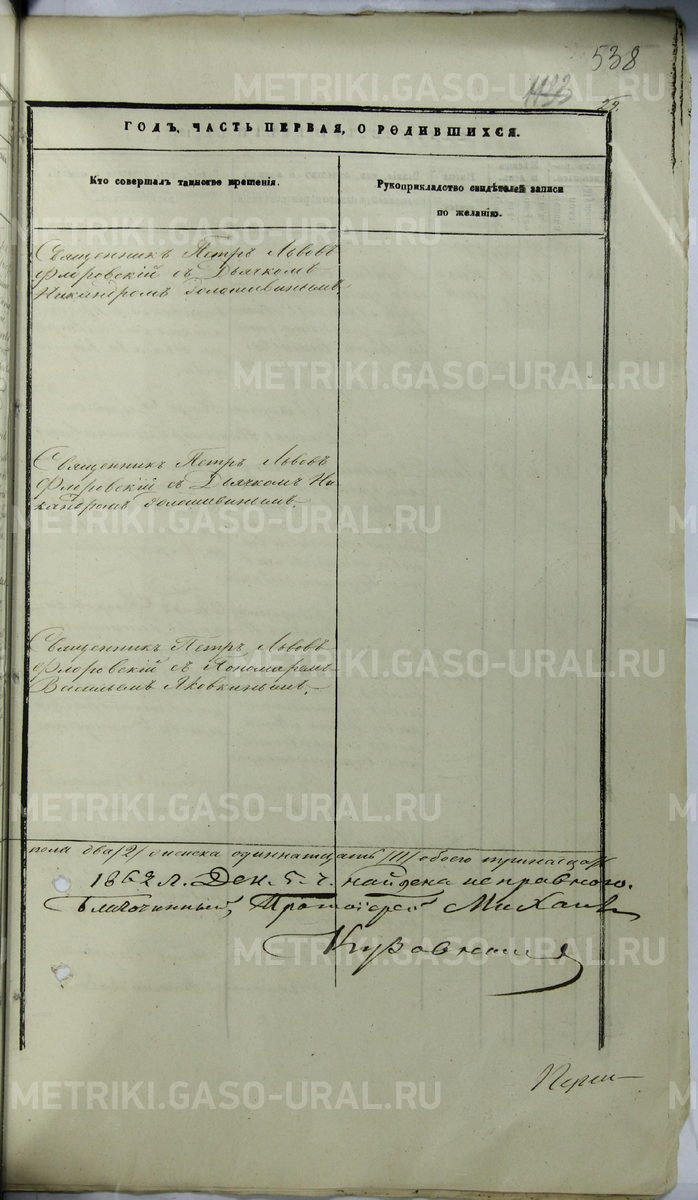 538
1123
29.
ГОДЪ, ЧАСТЬ ПЕРВАЯ, О РОДИВШИХСЯ.
Кто совершалъ таинство крещенія.
Рукоприкладство свидѣтелей записи
по желанію.
Священникъ Петръ Львовъ
Флоровскій съ Дьячкомъ
Никандромъ
Священникъ Петръ Львовъ
Флоровскій съ Дьячкомъ Ни
кандромъ
Священникъ Петръ Львовъ
Флоровскій съ Пономаремъ
Васильемъ Яковкинымъ.
пола два /2/ женска одиннатцать /11/ обоего тринатцать
1862 г. Дек. 5 ч. найдена исправною.
Благочинный, Протоіерей Михаилъ
METRIKI.GASO-URAL.RU
METRIKI.GASO-URAL.RU
METRIKI.GASO-URAL.RU
METRIKI.GASO-URAL.RU
METRIKI.GASO-URAL.RU
METRIKI.GASO-URAL.RU
METRIKI.GASO-URAL.RU
METRIKI.GASO-URAL.RU